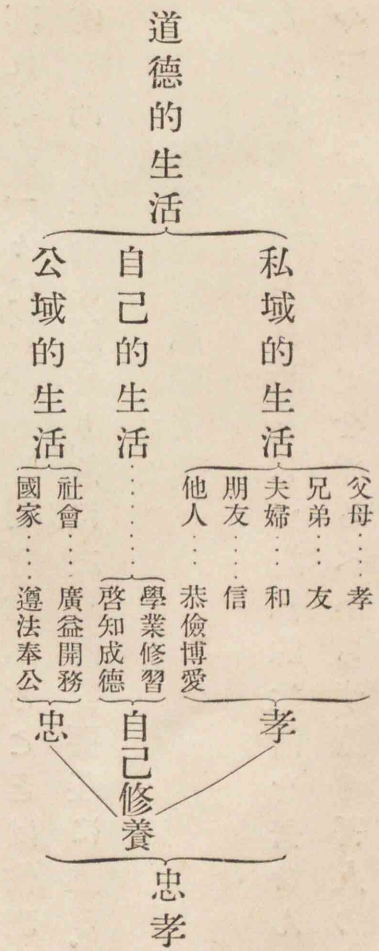 道德的生活
私域的生活
父母……孝
兄弟……友
夫婦……和
朋友……信
他人……恭儉博愛
孝
自己的生活……
學業修習
啓知成德
自己修養
公域的生活
社會……廣益開務
國家……遵法奉公
忠
忠孝